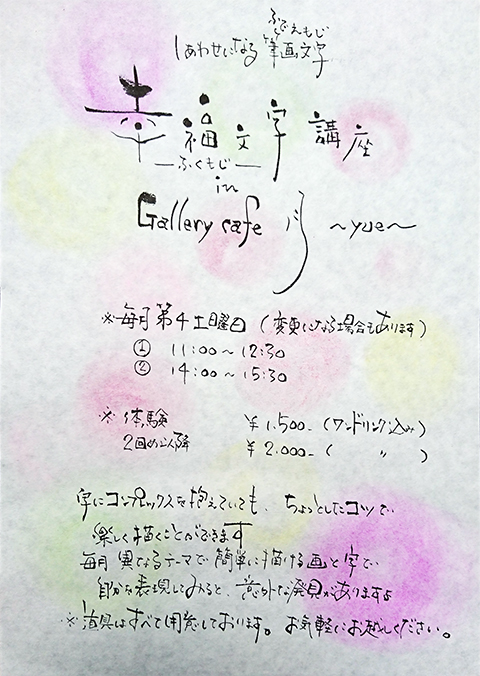 ふでえもじ
しあわせになる筆画文字
幸福文字講座
ーふくもじー
in
Gallery cafe 月 〜yue〜
※毎月第4土曜日(変更になる場合もあります)
① 11:00〜12:30
② 14:00〜15:30
※体験 ¥1.500-(ワンドリンク込み)
2回め以降 ¥2.000-( 〃 )
字にコンプレックスを抱えていても、ちょっとしたコツで
楽しく描くことができます
毎月異なるテーマで簡単に描ける画と字で
自分を表現してみると、意外な発見がありますよ
※道具はすべて用意しております。お気軽にお越しください。